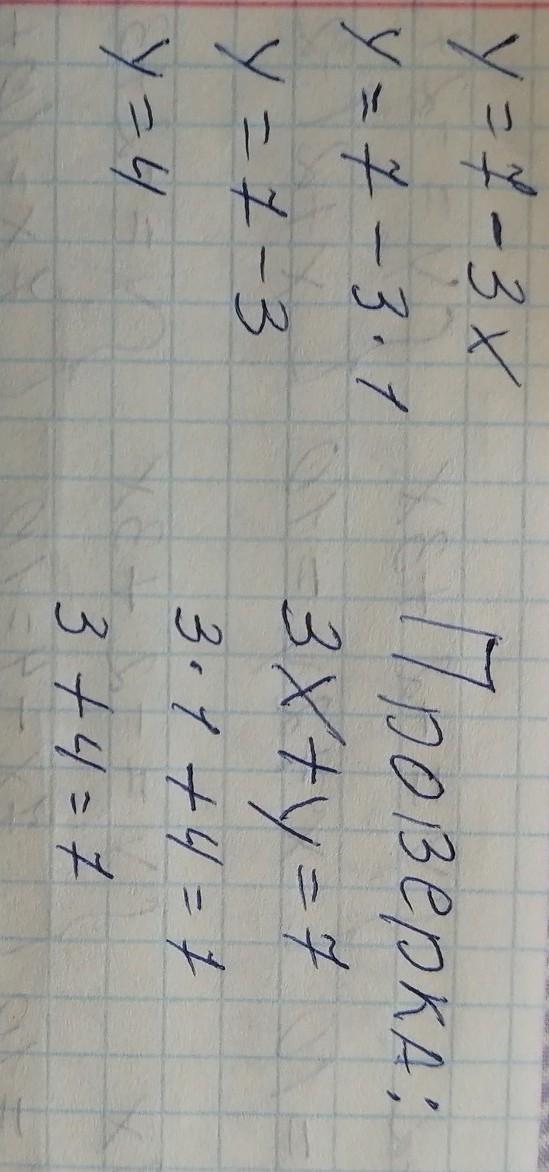 y = 7 - 3x
y = 7 - 3 · 1
y = 7 - 3
y = 4
Проверка:
3x + y = 7
3 · 1 + 4 = 7
3 + 4 = 7